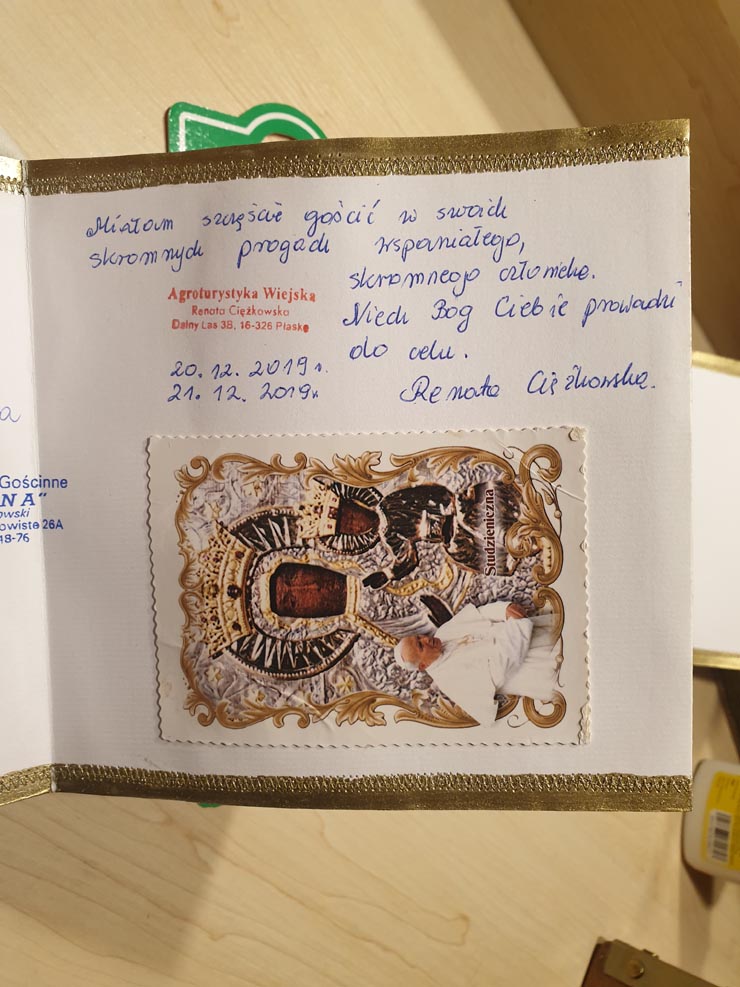 Miałam szczęście gościć w swoich
skromnych progach wspaniałego,
skromnego człowieka.
Niech Bóg Ciebie prowadzi
do celu.
Agroturystyka Wiejska
Renata Ciężkowska
Dalny Las 3B, 16-326 Płaska
20.12.2019r.
21.12.2019r
Renata Ciężkowska.
a
Gościnne
NA"
owski
owiste 26A
48-76
Studzieniczna